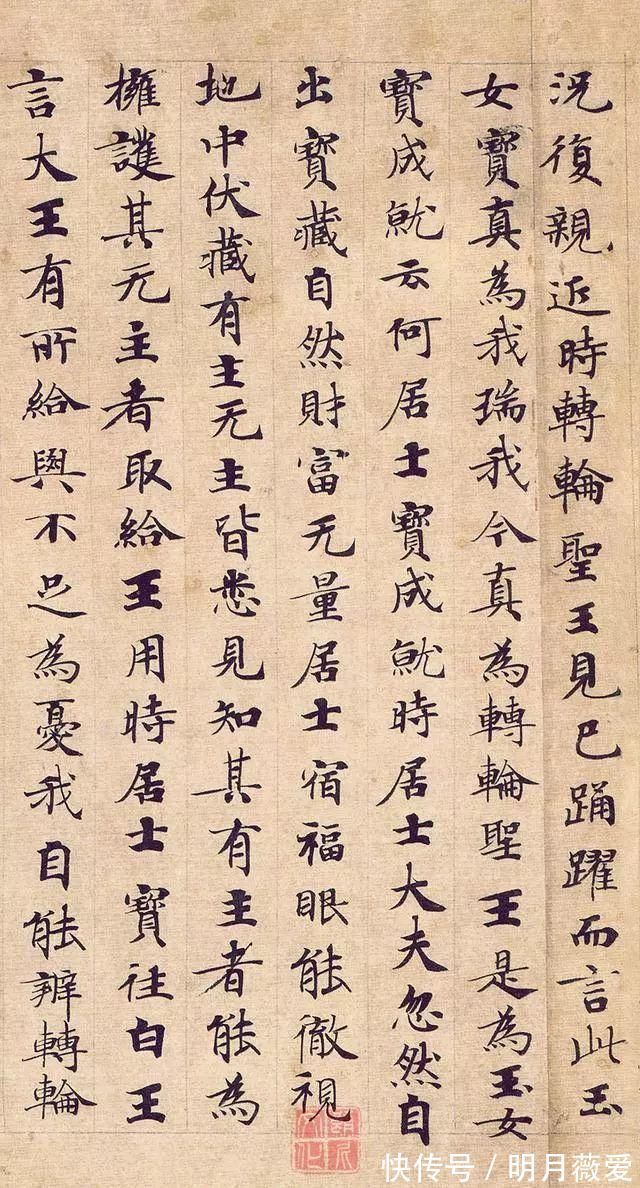 況復親近時轉輪聖王見已踊躍而言此玉
女寶真為我瑞我今真為轉輪聖王是為玉女
寶成就云何居士寶成就時居士大夫忽然自
出寶藏自然財富无量居士宿福眼能徹視
地中伏藏有主无主皆悉見知其有主者能為
擁護其无主者取給王用時居士寶往白王
言大王有所給與不足為憂我自能辦轉輪
快传号/明月薇爱